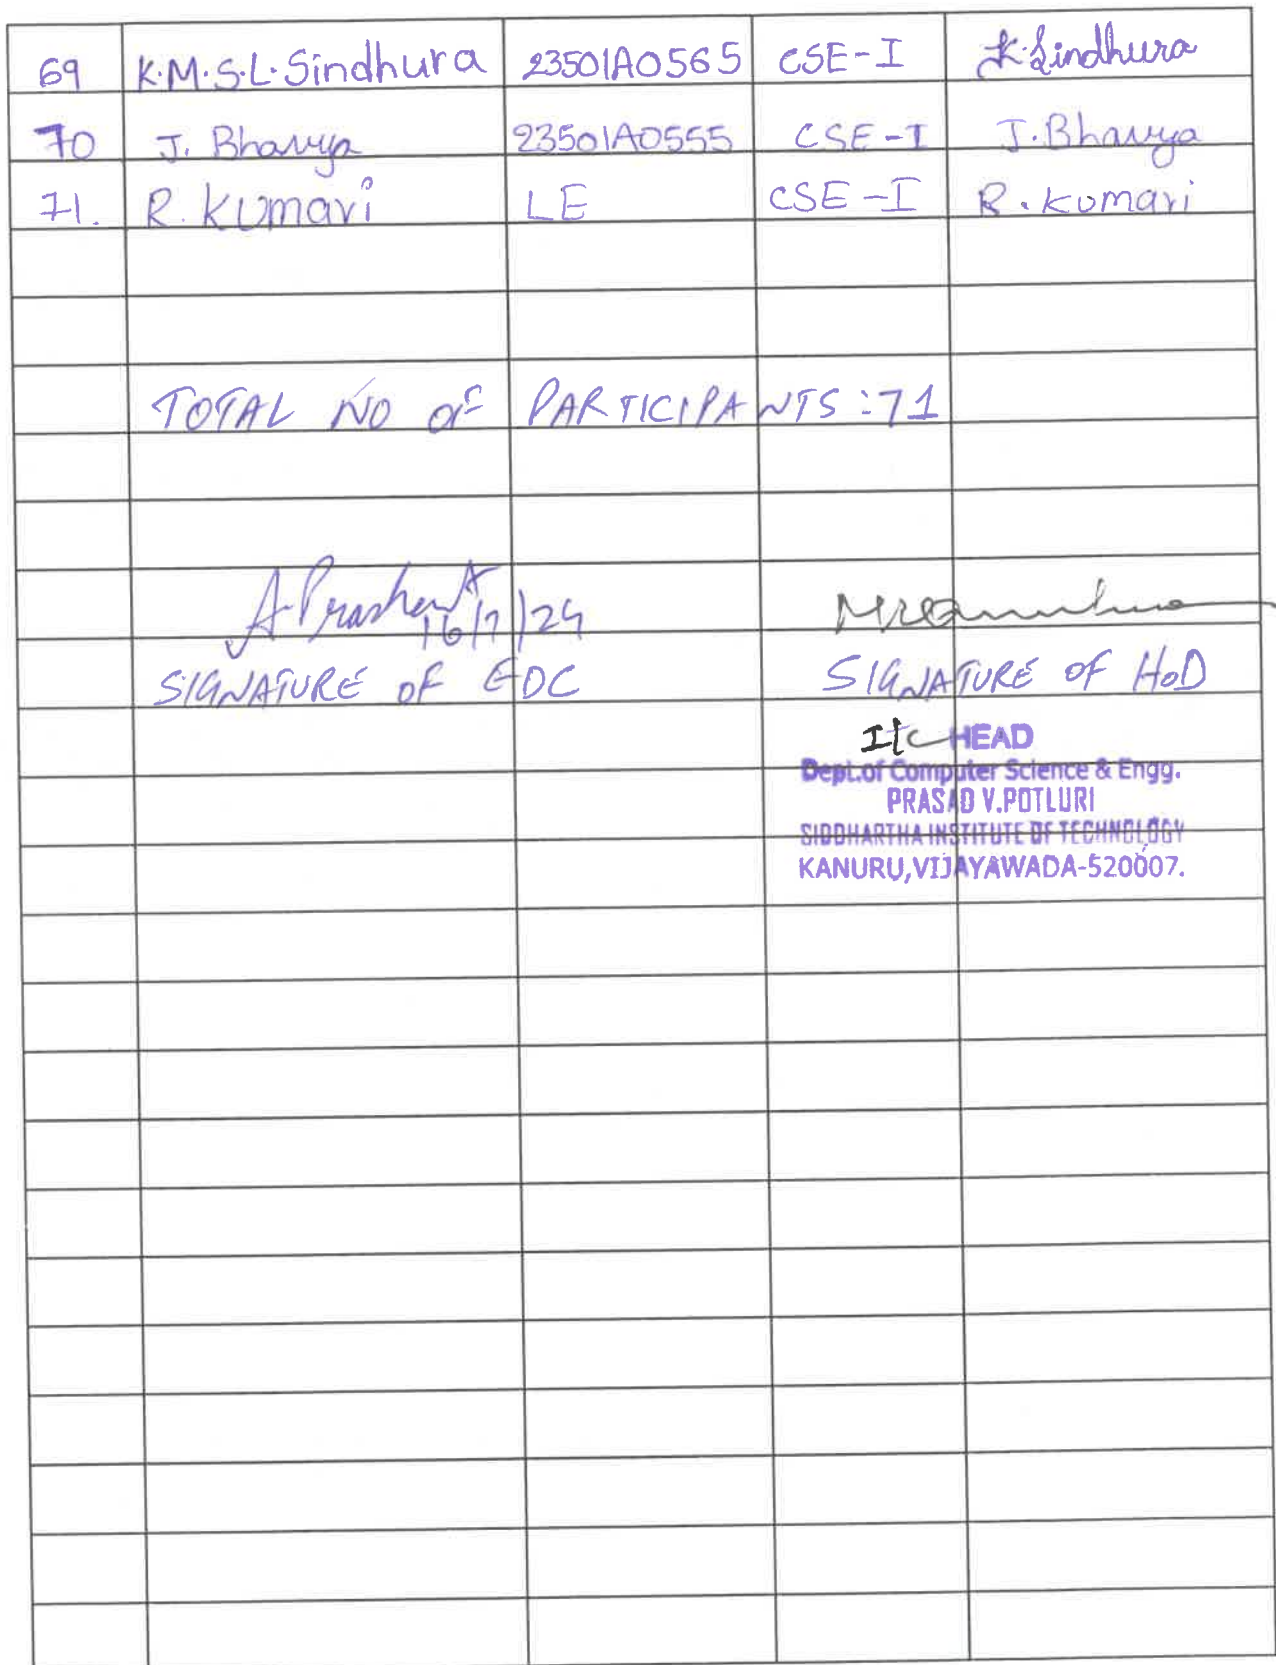 69 K.M.S.L.Sindhura 23501A0565 CSE-I K.Sindhura
70 J. Bhavya 23501A0555 CSE-I J.Bhavya
71. R. Kumari LE CSE-I R. Kumari
TOTAL NO OF PARTICIPANTS :71
A Prashant
16/7/24
SIGNATURE OF EDC SIGNATURE OF HoD
I/c HEAD
Dept.of Computer Science & Engg.
PRASAD V.POTLURI
SIDDHARTHA INSTITUTE OF TECHNOLOGY
KANURU,VIJAYAWADA-520007.